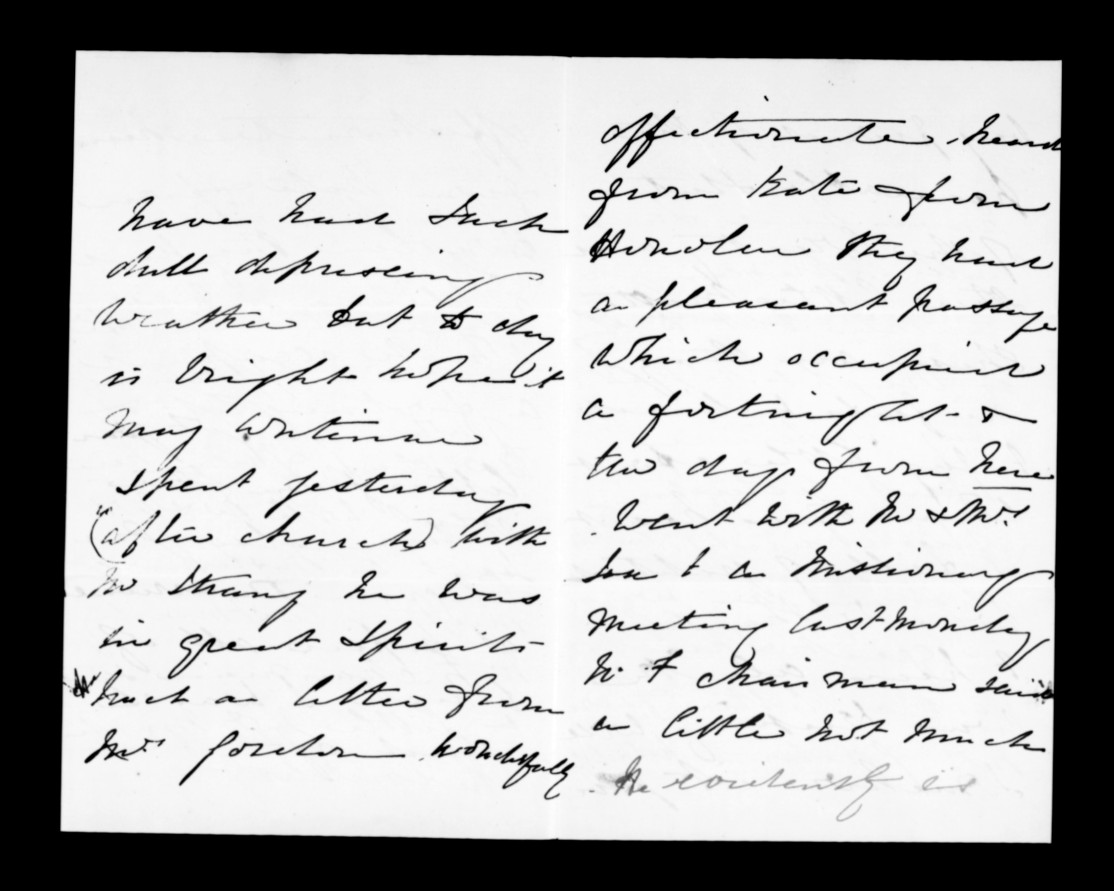 have had such
dull depressing
weather but to day
is bright hope it
may continue
Spent yesterday
(after church) with
Mr Strang he was
in great spirits
had a letter from
Mrs Gordon wonderfully
affectionate, heard
from Kate from
Honolulu they had
a pleasant passage
which occupied
a fortnight &
two days from here
went with Mr & Mrs
to a Missionary
meeting last Monday
Mr F chairman said
a little not much
He evidently is